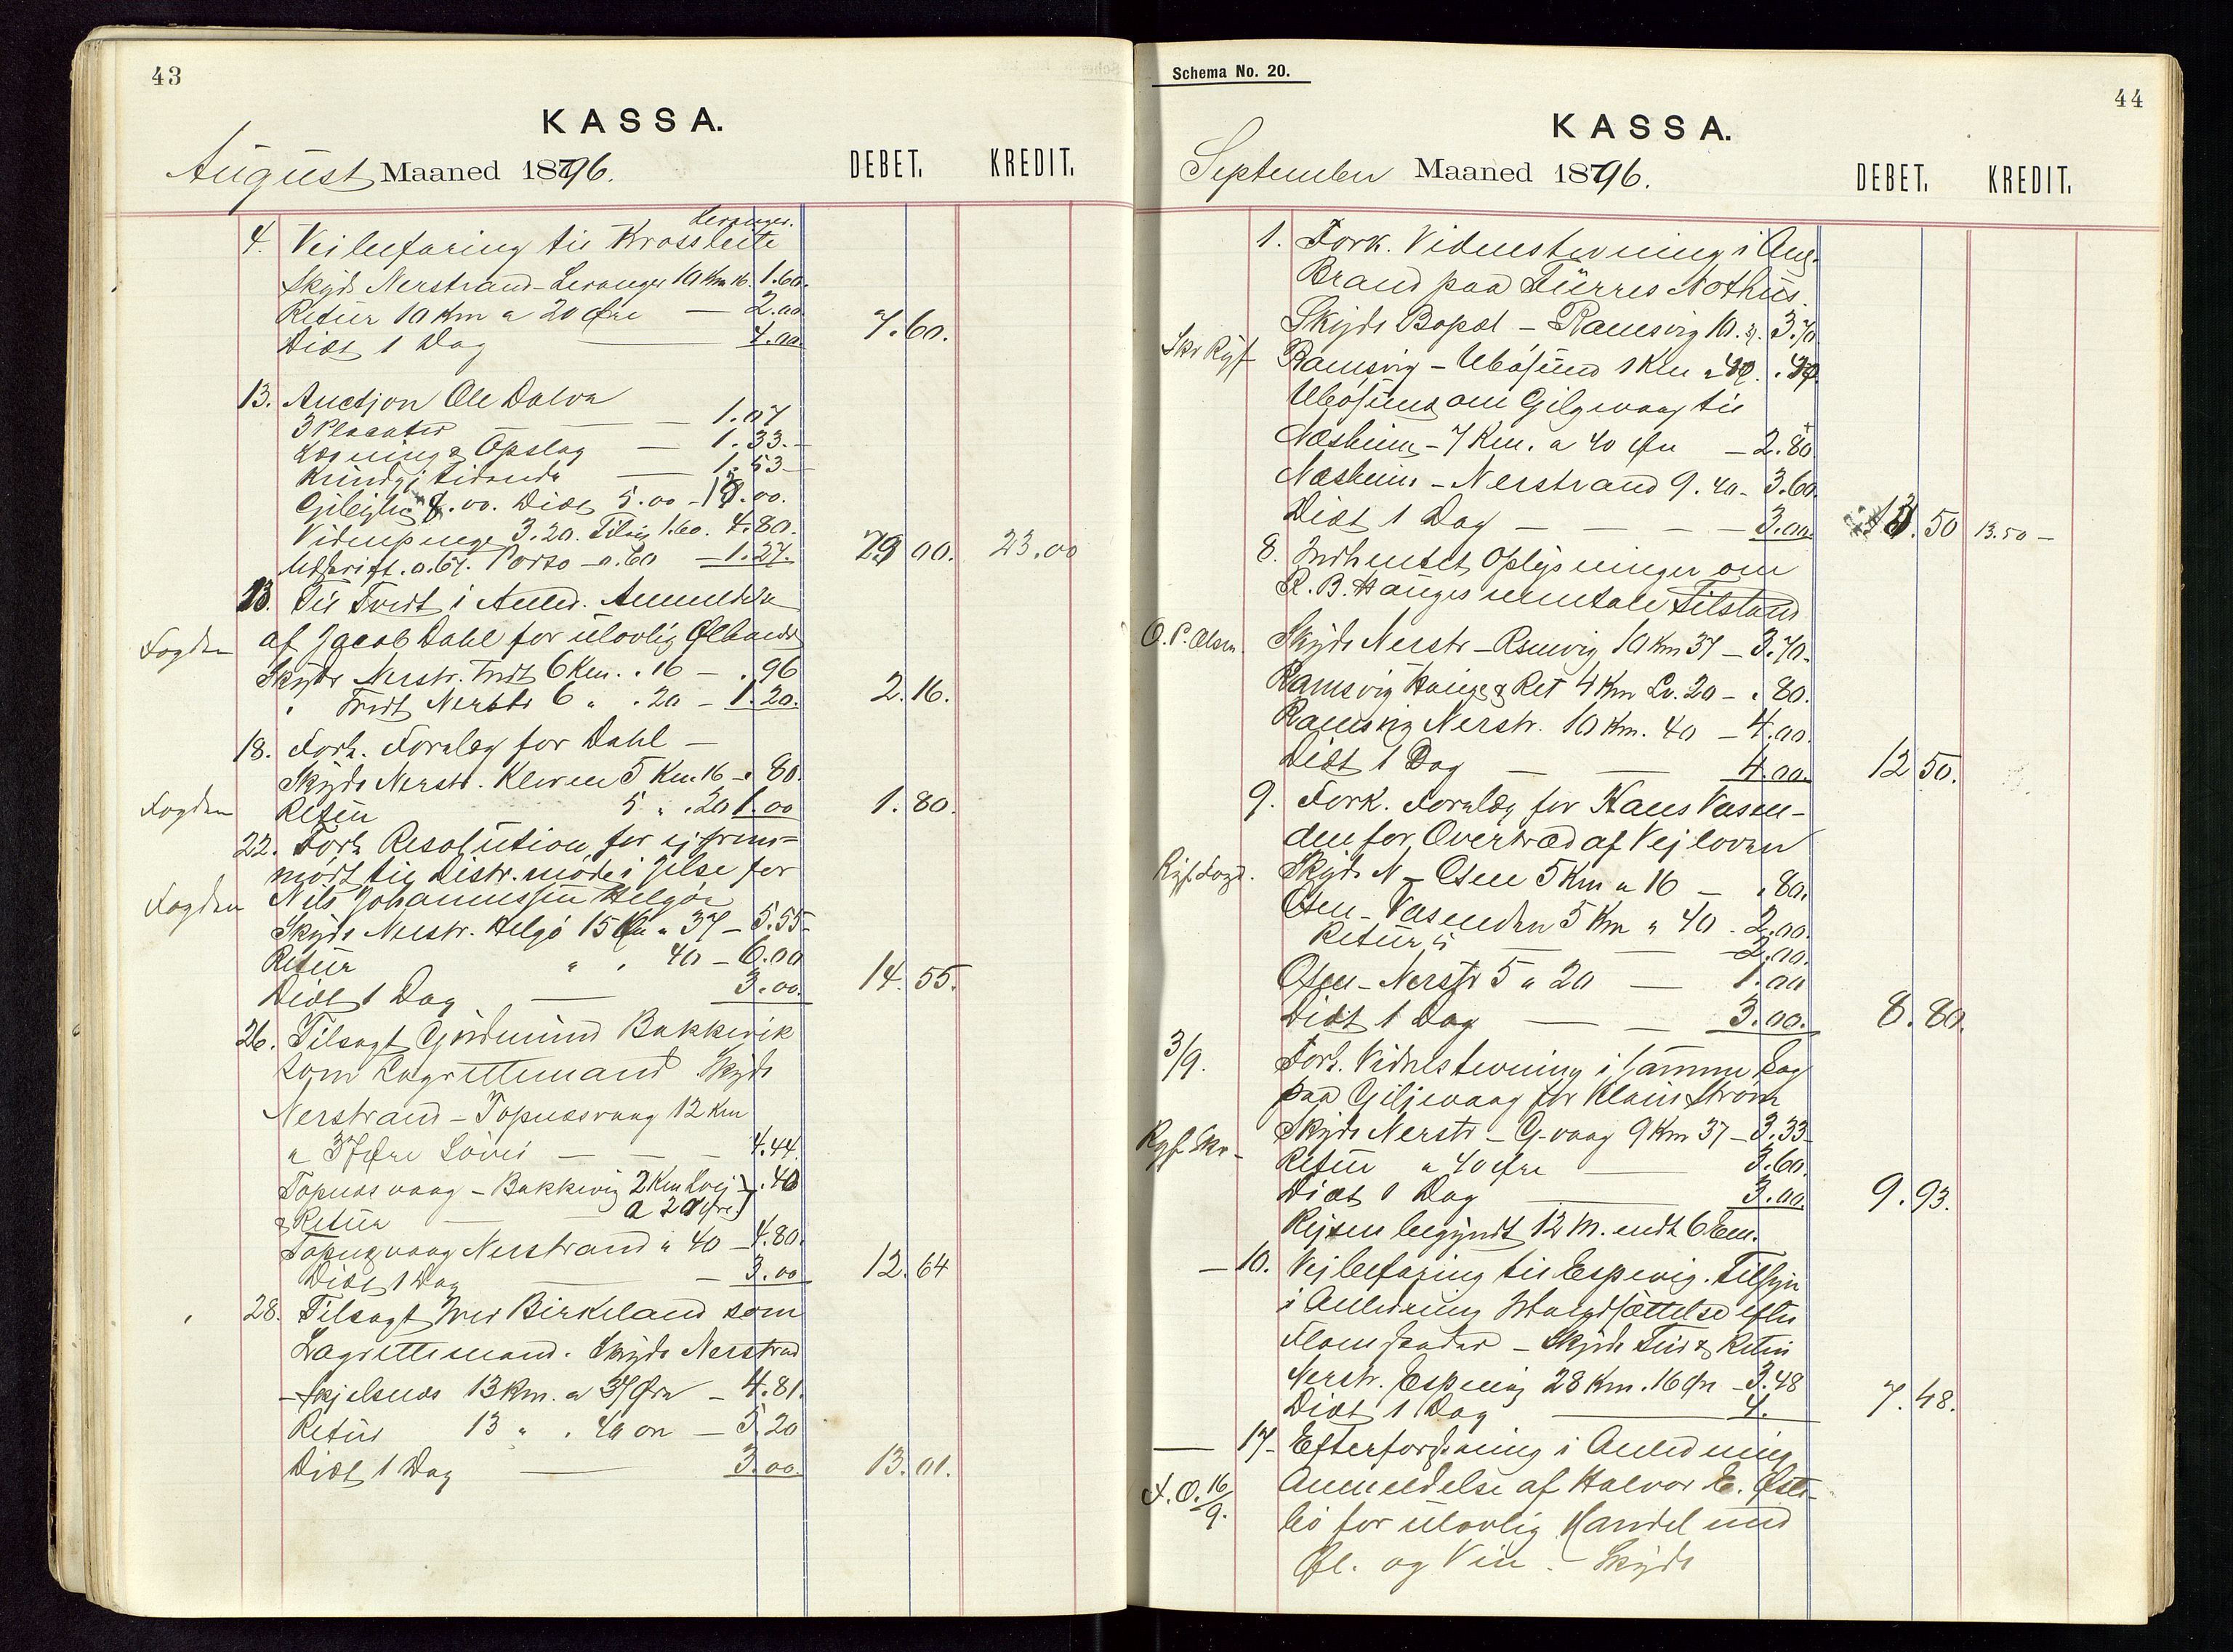 43
KASSA.
August Maaned 1896.
DEBET. KREDIT.
Leranger.
4. Veibefaring til Krossleite
Skyds Nerstrand-Leranger 10 Km 16. 1.60.
Retur 10 Km a 20 Øre — 2.00
Diæt 1 Dag — 4.00. 7.60.
13. Auction Ole Dalva
3 Placater — 1.07
Læsning & Opslag — 1.33.-
Kundgj. tidende — 1.53-
Vidnepenge 3.20. 1.60. 4.80.
Udskrift. 0.67. Porto 0.60 — 1.27. 29 00. 23.00
13. Til Tvedt i Anled. Anmeldelse
af Jacob Dahl for ulovlig Ølhandel
Fogden
Skyds Nerstr. Tvedt 6 Km. . 16 — . 96
" Tvedt Nerstr 6 " . 20 — 1.20. 2.16.
18. Fork. Forelæg for Dahl —
Skyds Nerstr. Kleven 5 Km. 16 — . 80.
Fogden Retur 5 " . 20 1.00 1.80.
22. Fork Resolution for ej frem=
mødt til Distr. møde i Jelse for
Fogden Nils Johannessen Helgø
Skyds Nerstr. Helgø 15 Km a 37 — 5.55-
Retur " , 40 — 6.00
Diæt 1 Dag — 3.00. 14.55.
26. Tilsagt Gudmund Bakkevik
som Lagrettemand Skyds
Nerstrand — Topnesvaag 12 Km
a 37 Øre — 4.44.
Topnesvaag — Bakkevig 2 Km Lvej . 40
& Retur — a 20 Øre
Topnesvaag Nerstrand a 40 — 4.80.
Diæt 1 Dag — 3.00 12.64
28. Tilsagt Iver Birkeland som
Lagrettemand. Skyds Nerstrand
— Skjelsnes 13 Km. a 37 Øre — 4.81.
Retur 13 " . 40 øre — 5.20
Diæt 1 Dag — 3.00. 13.01.
Schema No. 20.
44
KASSA.
September Maaned 1896.
DEBET. KREDIT.
1. Fork. Vidnestevning i Anl.
Brand paa Türres Nothus.
Skyds Bopæl — Ramsvig 10. 37. 3.70
Skr Ryf Ramsvig — Ubøsund 1 Km a 40. . 40
Ubøsund om Gilgevaag til
Næsheim — 7 Km. a 40 Øre — 2.80
Næsheim — Nerstrand 9. 40. 3.60
Diæt 1 Dag — 3.00. 13.50 13.50 —
8. Indhentet Oplysninger om
R. B. Hauges mentale Tilstand
O. P. Olsen. Skyds Nerstr — Ramsvig 10 Km 37 — 3.70.
Ramsvig Hauge & Ret 4 Km Lv. 20 — . 80.
Ramsvig Nerstr. 10 Km. 40 — 4.00.
Diæt 1 Dag — 4.00. 12 50.
9. Fork. Forelæg for Hans Vasen-
den for Overtræd af Vejloven
Ryf. Fogd. Skyds N — Osen 5 Km a 16 — . 80.
Osen — Vasenden 5 Km a 40 . 2.00.
Retur " — 2.00.
Osen — Nerstr 5 a 20 — 1.00
Diæt 1 Dag — 3.00. 8.80.
3/9. Fork. Vidnestevning i samme Sag
paa Giljevaag for Klaus Strøm
Ryf. Skr — Skyds Nerstr — G-vaag 9 Km 37 — 3.33-
Retur a 40 Øre — 3.60.
Diæt 1 Dag — 3.00. 9.93.
Rejsen begyndt 12 M. endt 6 Em.
— 10. Vejbefaring til Espevig. Tilsyn
i Anledning Istandsættelse efter
Flomskader — Skyds Tur & Retur
Nerstr. Espevig 28 Km. 16 Øre — 3.48
Diæt 1 Dag — 4. 7.48.
— 17- Efterforskning i Anledning
Anmeldelse af Halvor E. Øst-
F. O. 16/9.
bø for ulovlig Handel med
Øl. og Vin. — Skyds